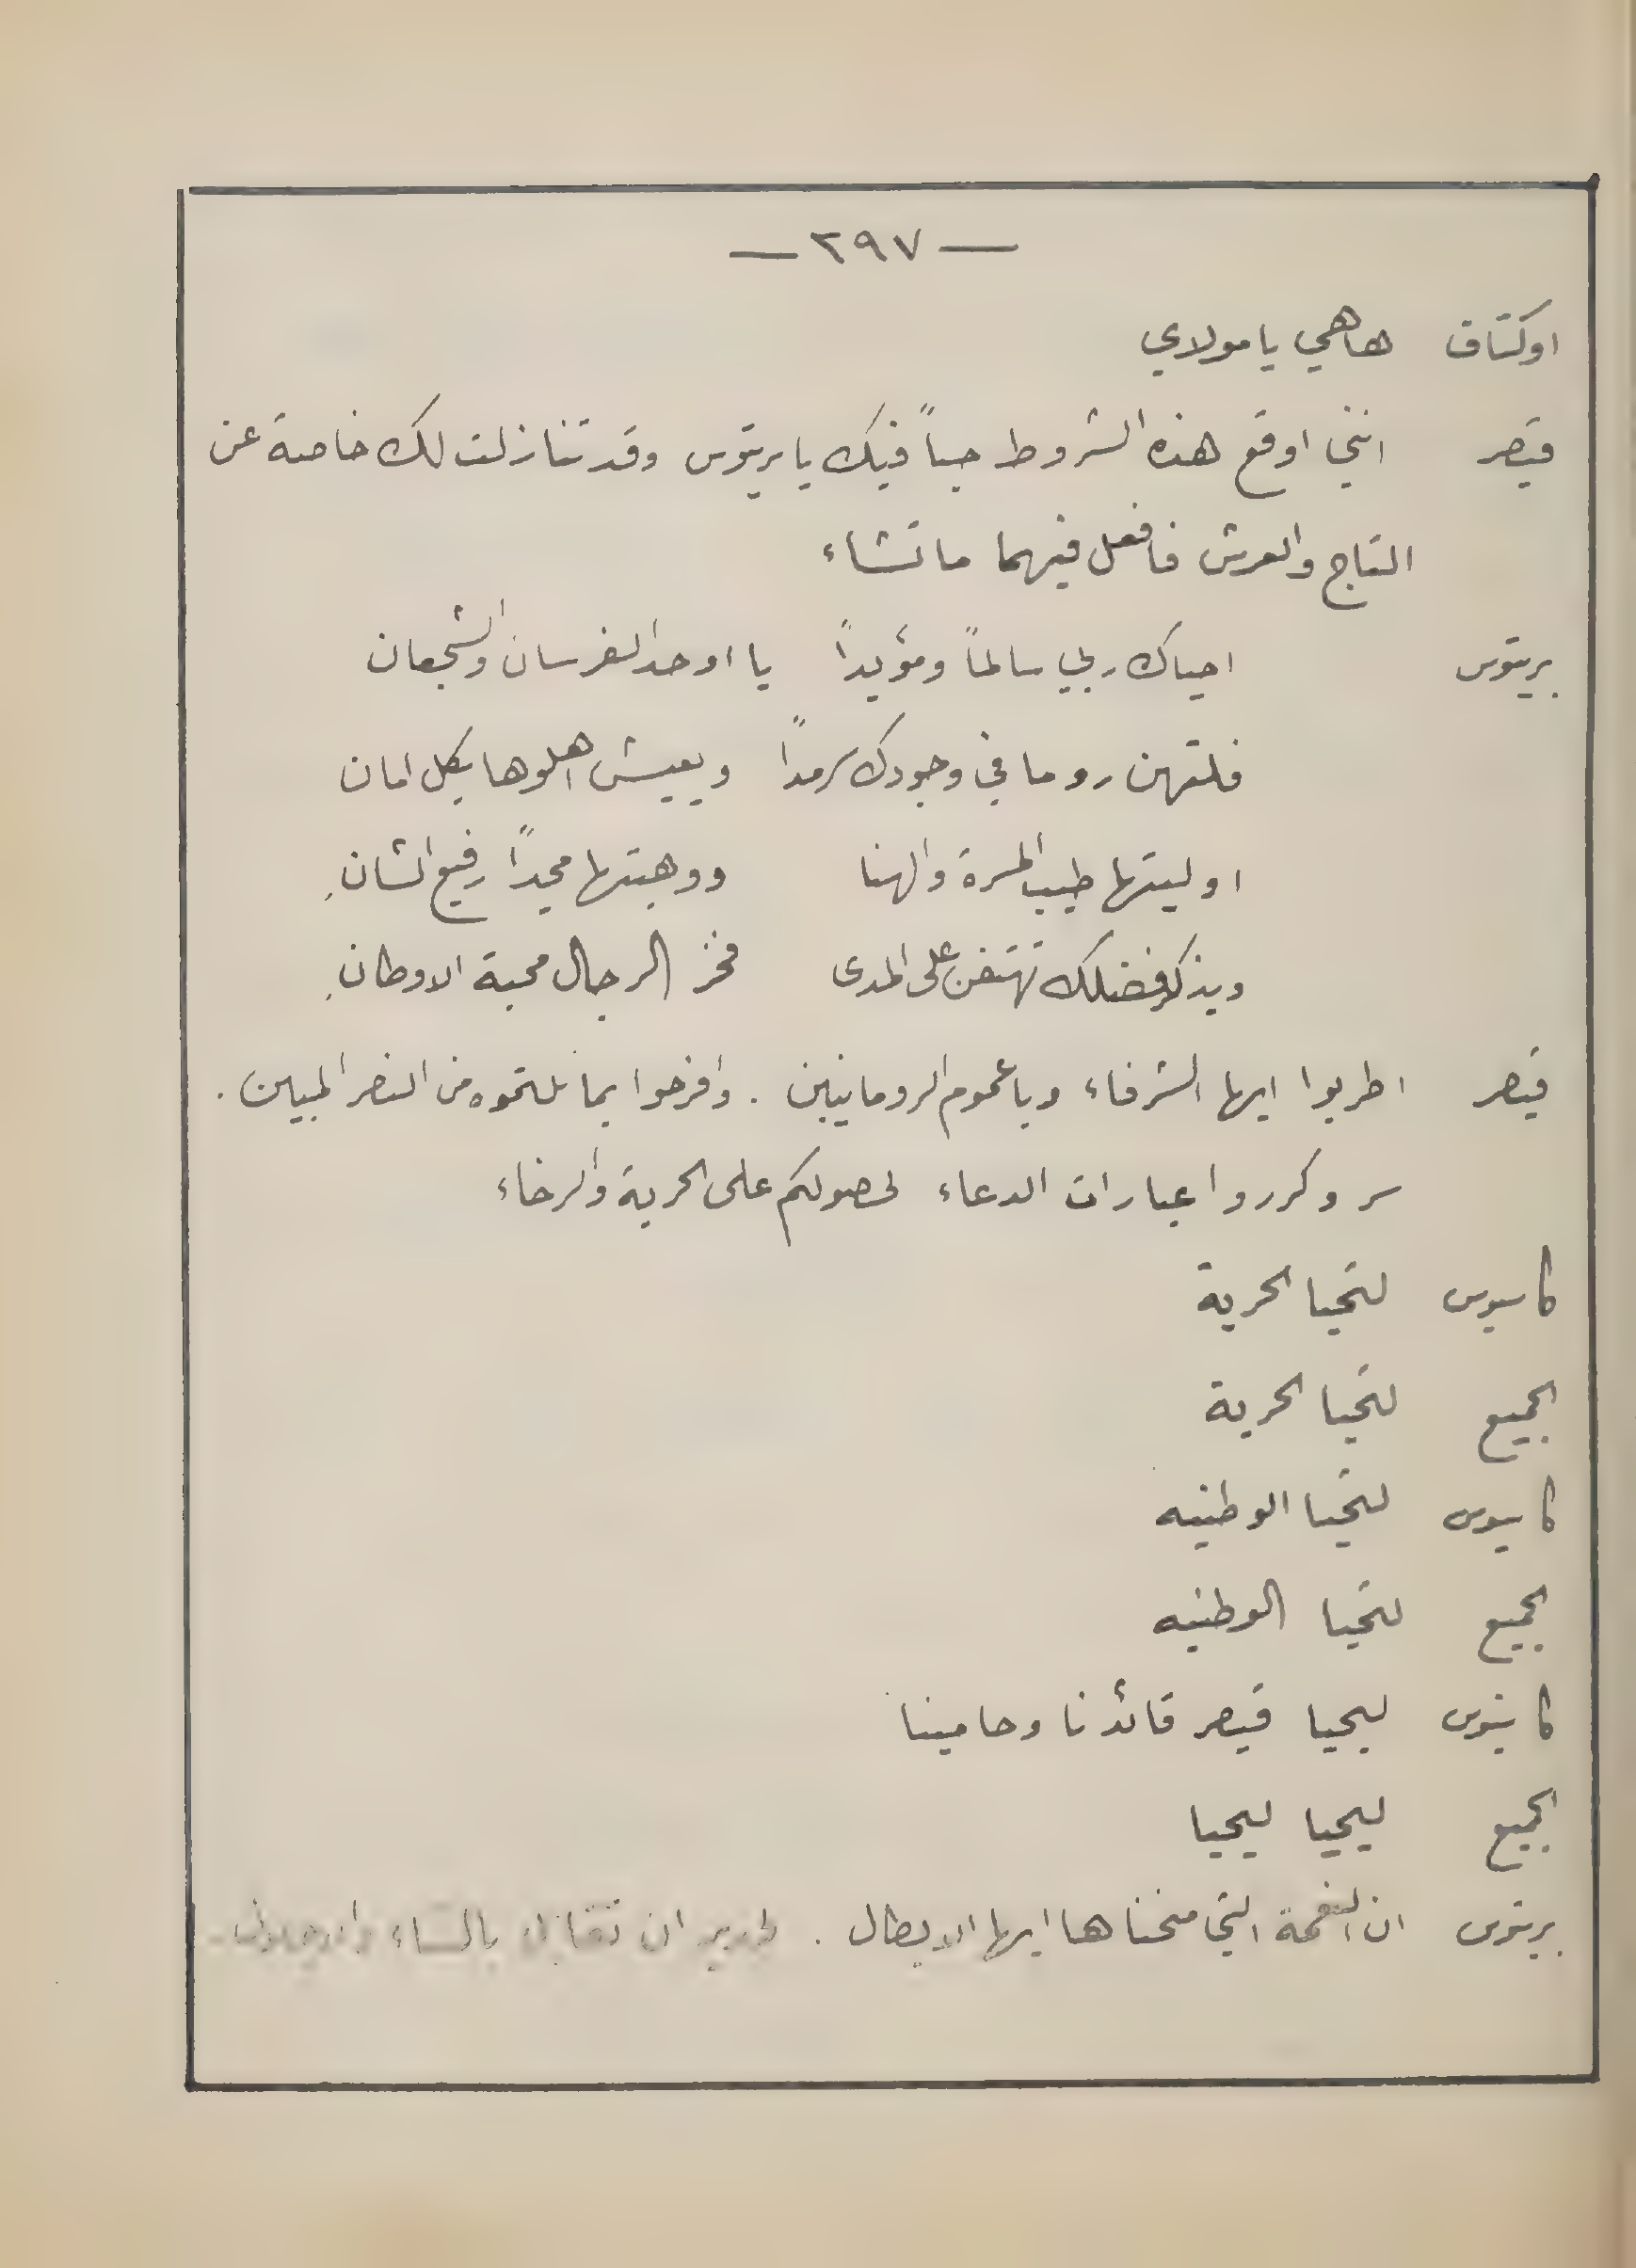 — ٢٩٧ —
اوكتاف هاهي يا مولاي
قيصر انني اوقع هذه الشروط حباً فيك يا بريتوس وقد تنازلت لك خاصة عن
التاج والعرش فافعل فيهما ما تشاء
بريتوس احياك ربي سالماً ومؤيداً يا اوحد الفرسان والشجعان
فلتهن روما في وجودك سرمداً ويعيش اهلوها بكل امان
اوليتها طيب المسرة والهنا ووهبتها مجداً رفيع الشان
وبذكر فضلك تهتفن على المدى فخر الرجال محبة الاوطان
قيصر اطربوا ايها الشرفاء ويا عموم الرومانيين . وافرحوا بما نلتموه من النصر المبين .
وكرروا عبارات الدعاء لحصولكم على الحرية والرخاء
كاسيوس لتحيا الحرية
الجميع لتحيا الحرية
كاسيوس لتحيا الوطنيه
الجميع لتحيا الوطنيه
كاسيوس ليحيا قيصر قائدنا وحامينا
الجميع ليحيا ليحيا
بريتوس ان النعمة التي منحناها ايها الابطال . ان تقابل